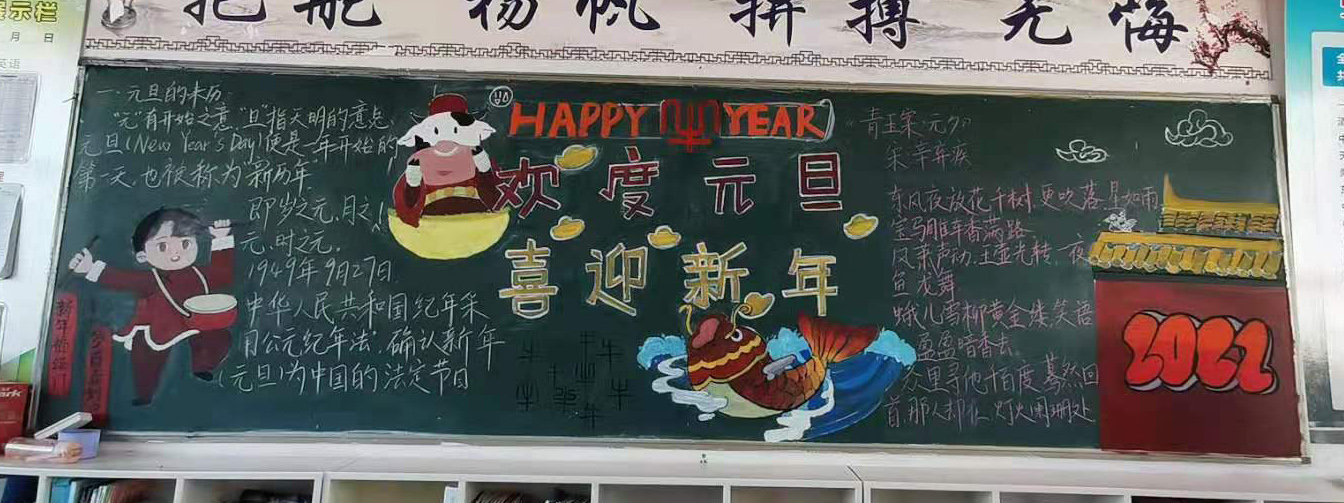 示栏
月 日
英语
把舵 扬帆 拼搏 无悔
一、元旦的来历
"元"有开始之意,"旦"指天明的意思
元旦(New Year's Day)便是一年开始的
第一天,也被称为"新历年"
即岁之元,月之
元,时之元。
1949年9月27日
中华人民共和国纪年采
用公元纪年法,确认新年
(元旦)为中国的法定节日
HAPPY 牛 YEAR
欢度元旦
喜迎新年
牛
牛
牛
牛
牛
青玉案·元夕
宋·辛弃疾
东风夜放花千树,更吹落,星如雨
宝马雕车香满路
风箫声动,玉壶光转,一夜
鱼龙舞
蛾儿雪柳黄金缕,笑语
盈盈暗香去
众里寻他千百度,蓦然回
首,那人却在,灯火阑珊处
2022